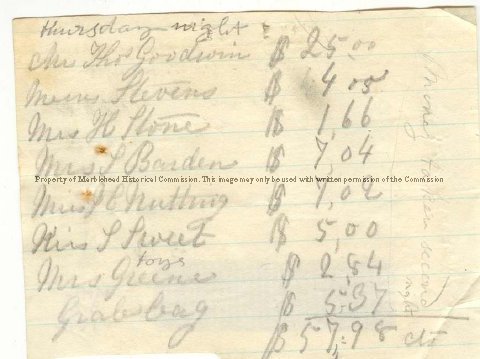 Thursday night
Mrs Thos Goodwin $ 25,00
Stevens $ 4 05
Mrs H Stone $ 1,66
Mrs S Barden $ 7,04
Property of Marblehead Historical Commission. This image may only be used with written permission of the Commission
Nutting $ 7,02
S Sweet $ 5,00
Mrs Greene toys $ 2,84
Grab bag $ 5:37
$ 57,98 cts
(money taken second night